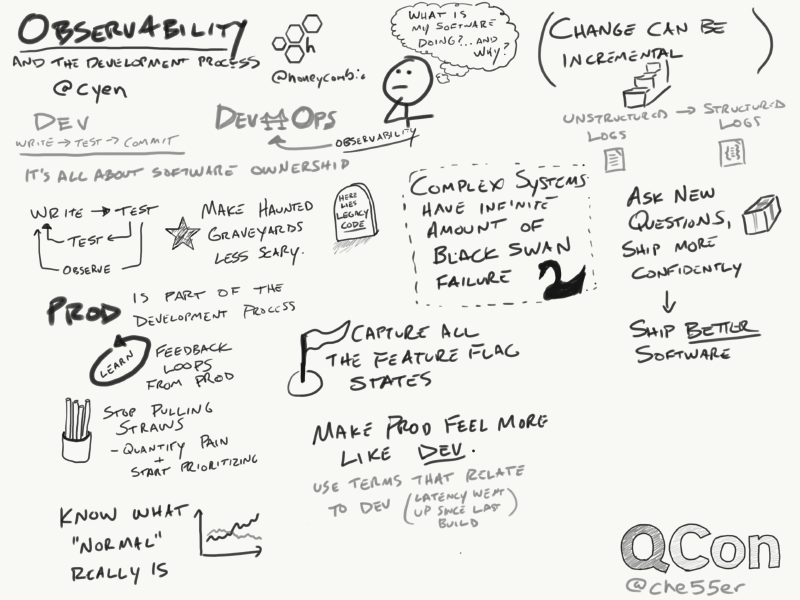 OBSERVABILITY
AND THE DEVELOPMENT PROCESS
@cyen
h
@honeycombio
WHAT IS
MY SOFTWARE
DOING?...AND
WHY?
(CHANGE CAN BE
INCREMENTAL)
UNSTRUCTURED LOGS → STRUCTURED LOGS
DEV
WRITE → TEST → COMMIT
DEV OPS
OBSERVABILITY
IT'S ALL ABOUT SOFTWARE OWNERSHIP
WRITE → TEST
TEST
OBSERVE
MAKE HAUNTED
GRAVEYARDS
LESS SCARY.
HERE
LIES
LEGACY
CODE
COMPLEX SYSTEMS
HAVE INFINITE
AMOUNT OF
BLACK SWAN
FAILURE
ASK NEW
QUESTIONS,
SHIP MORE
CONFIDENTLY
↓
SHIP BETTER
SOFTWARE
PROD IS PART OF THE
DEVELOPMENT PROCESS
LEARN
FEEDBACK
LOOPS
FROM PROD
STOP PULLING
STRAWS
- QUANTIFY PAIN
+
START PRIORITIZING
KNOW WHAT
"NORMAL"
REALLY IS
CAPTURE ALL
THE FEATURE FLAG
STATES
MAKE PROD FEEL MORE
LIKE DEV.
USE TERMS THAT RELATE
TO DEV (LATENCY WENT
UP SINCE LAST
BUILD)
QCon
@che55er